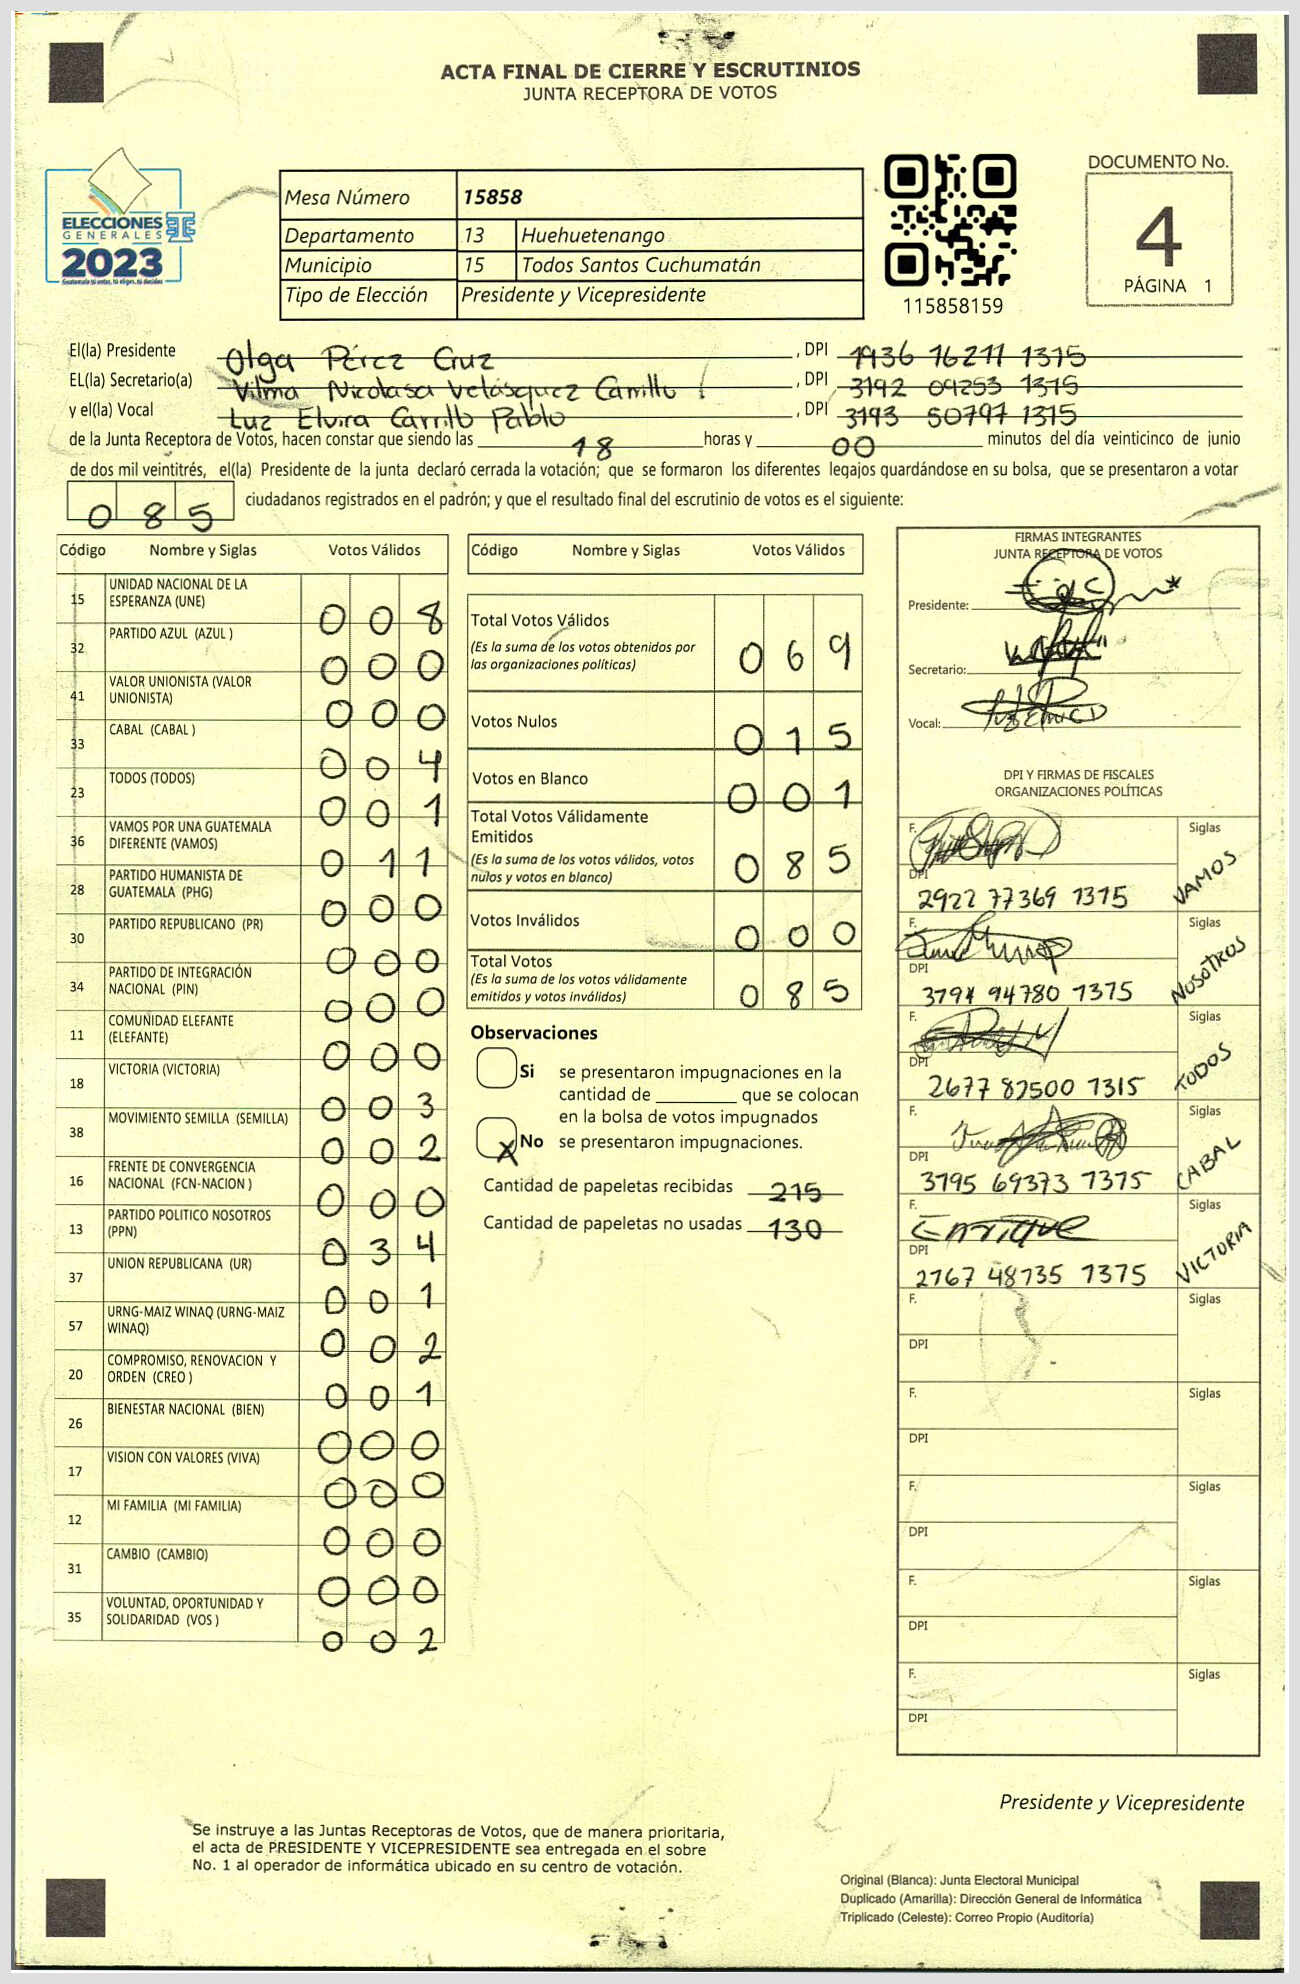 ACTA FINAL DE CIERRE Y ESCRUTINIOS
JUNTA RECEPTORA DE VOTOS
ELECCIONES
GENERALES
2023
Guatemala tú entas, tú eliges, tú decides
Mesa Número 15858
Departamento 13 Huehuetenango
Municipio 15 Todos Santos Cuchumatán
Tipo de Elección Presidente y Vicepresidente
115858159
DOCUMENTO No.
4
PÁGINA 1
El(la) Presidente Olga Pérez Cruz, DPI 1936 16211 1315
EL(la) Secretario(a) Vilma Nicolasa Velásquez Carrillo, DPI 3192 09253 1315
y el(la) Vocal Luz Elvira Carrillo Pablo, DPI 3193 50797 1315
de la Junta Receptora de Votos, hacen constar que siendo las 18 horas y 00 minutos del día veinticinco de junio
de dos mil veintitrés, el(la) Presidente de la junta declaró cerrada la votación; que se formaron los diferentes legajos quardándose en su bolsa, que se presentaron a votar
085 ciudadanos registrados en el padrón; y que el resultado final del escrutinio de votos es el siguiente:
Código Nombre y Siglas Votos Válidos
15 UNIDAD NACIONAL DE LA ESPERANZA (UNE) 008
32 PARTIDO AZUL (AZUL ) 000
41 VALOR UNIONISTA (VALOR UNIONISTA) 000
33 CABAL (CABAL ) 004
23 TODOS (TODOS) 001
36 VAMOS POR UNA GUATEMALA DIFERENTE (VAMOS) 011
28 PARTIDO HUMANISTA DE GUATEMALA (PHG) 000
30 PARTIDO REPUBLICANO (PR) 000
34 PARTIDO DE INTEGRACIÓN NACIONAL (PIN) 000
11 COMUNIDAD ELEFANTE (ELEFANTE) 000
18 VICTORIA (VICTORIA) 003
38 MOVIMIENTO SEMILLA (SEMILLA) 002
16 FRENTE DE CONVERGENCIA NACIONAL (FCN-NACION ) 000
13 PARTIDO POLITICO NOSOTROS (PPN) 034
37 UNION REPUBLICANA (UR) 001
57 URNG-MAIZ WINAQ (URNG-MAIZ WINAQ) 002
20 COMPROMISO, RENOVACION Y ORDEN (CREO ) 001
26 BIENESTAR NACIONAL (BIEN) 000
17 VISION CON VALORES (VIVA) 000
12 MI FAMILIA (MI FAMILIA) 000
31 CAMBIO (CAMBIO) 000
35 VOLUNTAD, OPORTUNIDAD Y SOLIDARIDAD (VOS ) 002
Código Nombre y Siglas Votos Válidos
Total Votos Válidos 069
(Es la suma de los votos obtenidos por
las organizaciones políticas)
Votos Nulos 015
Votos en Blanco 001
Total Votos Válidamente
Emitidos 085
(Es la suma de los votos válidos, votos
nulos y votos en blanco)
Votos Inválidos 000
Total Votos 085
(Es la suma de los votos válidamente
emitidos y votos inválidos)
Observaciones
Si se presentaron impugnaciones en la
cantidad de ________ que se colocan
en la bolsa de votos impugnados
X No se presentaron impugnaciones.
Cantidad de papeletas recibidas 215
Cantidad de papeletas no usadas 130
FIRMAS INTEGRANTES
JUNTA RECEPTORA DE VOTOS
Presidente:
Secretario:
Vocal:
DPI Y FIRMAS DE FISCALES
ORGANIZACIONES POLÍTICAS
F. Siglas VAMOS
DPI 2922 77369 1315
F. Siglas NOSOTROS
DPI 3194 94780 1315
F. Siglas TODOS
DPI 2677 87500 1315
F. Siglas CABAL
DPI 3195 69373 1315
F. Enrique Siglas VICTORIA
DPI 2767 48735 1315
F. Siglas
DPI
F. Siglas
DPI
F. Siglas
DPI
F. Siglas
DPI
F. Siglas
DPI
Presidente y Vicepresidente
Se instruye a las Juntas Receptoras de Votos, que de manera prioritaria,
el acta de PRESIDENTE Y VICEPRESIDENTE sea entregada en el sobre
No. 1 al operador de informática ubicado en su centro de votación.
Original (Blanca): Junta Electoral Municipal
Duplicado (Amarilla): Dirección General de Informática
Triplicado (Celeste): Correo Propio (Auditoría)